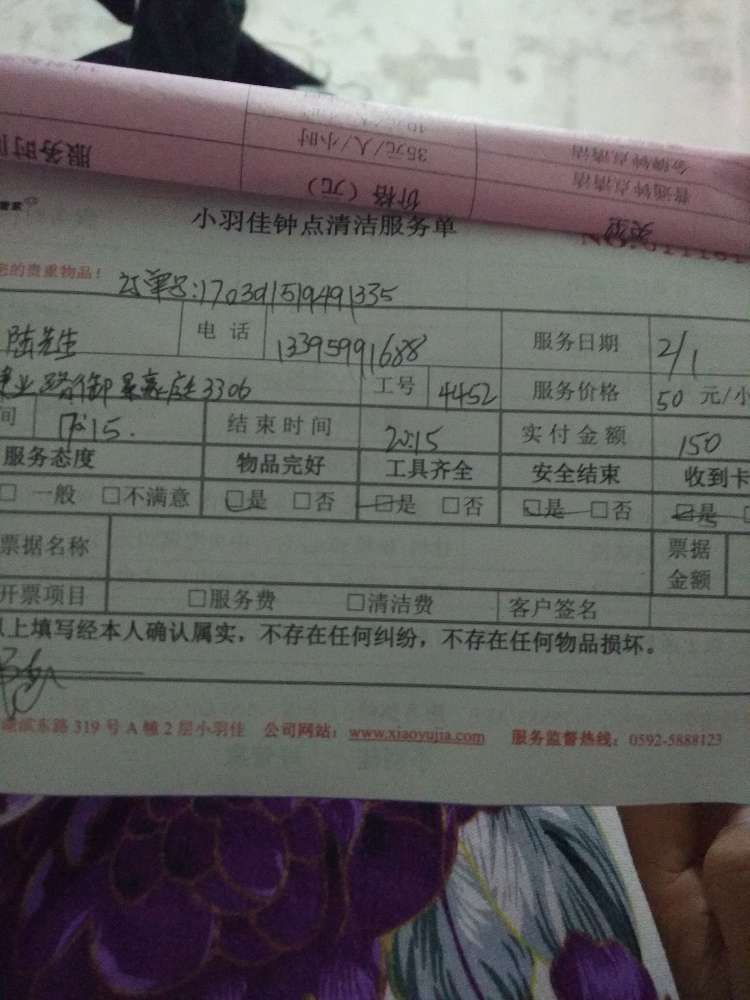 服务时间
35元/人/小时
金牌钟点清洁
普通钟点清洁
价格（元）
类型
管家
小羽佳钟点清洁服务单
您的贵重物品！
订单号:170391519491335
陆先生 电话 13395991688 服务日期 2/1
建业路御景豪庭3306 工号 4452 服务价格 50 元/小
间 17:15. 结束时间 20:15 实付金额 150
服务态度 物品完好 工具齐全 安全结束 收到卡
□ 一般 □不满意 □是 □否 □是 □否 □是 □否 □是
票据名称 票据金额
开票项目 □服务费 □清洁费 客户签名
以上填写经本人确认属实，不存在任何纠纷，不存在任何物品损坏。
湖滨东路 319 号 A 幢 2 层小羽佳 公司网站：www.xiaoyujia.com 服务监督热线：0592-5888123